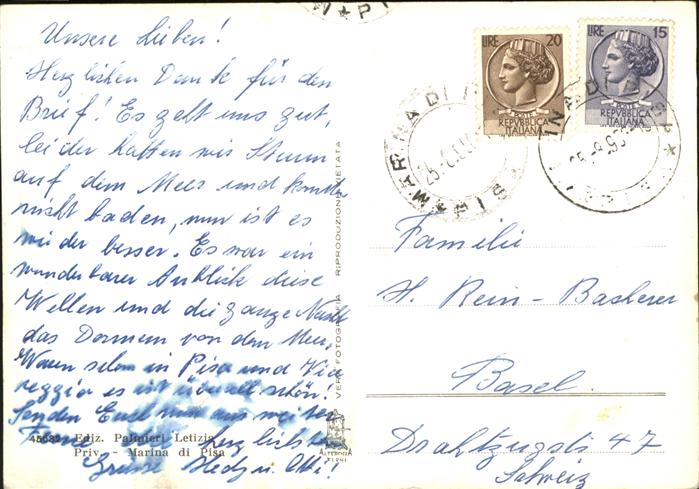 Unsere Lieben!
Herzlichen Dank für den
Brief! Es geht uns gut,
leider hatten wir Sturm
auf dem Meer und konnten
nicht baden, nun ist es
wieder besser. Es war ein
wunderbarer Anblick diese
Wellen und die ganze Nacht
das Donnern von dem Meer.
Waren schon in Pisa und Via-
reggio es ist überall schön!
Senden Euch nun aus weiter
Ferne herzlichsten
Grüsse Hedy u. Otti!
Ediz. Palmieri Letizia
Priv. - Marina di Pisa
VERA FOTOGRAFIA RIPRODUZIONE VIETATA
LIRE 20
POSTE
REPVBBLICA
ITALIANA
LIRE 15
POSTE
REPVBBLICA
ITALIANA
MARINA DI PISA
Familie
H. Rein-Bascherer
Basel.
Drahtzugstr 47
Schweiz